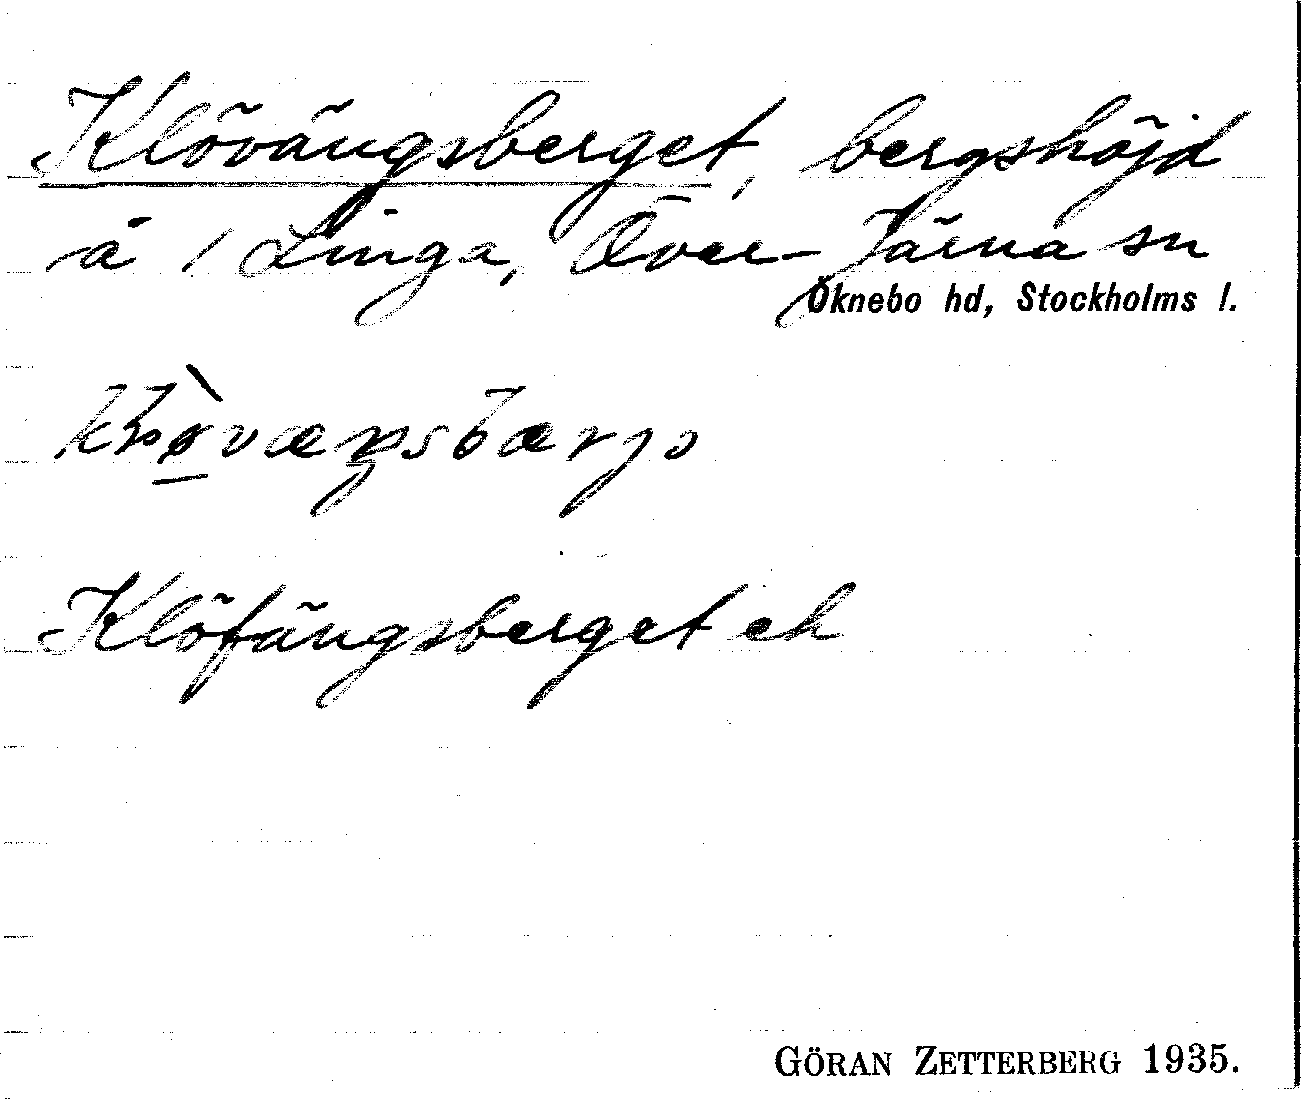 Klövängsberget, bergshöjd
å 1 Linga, Över-Järna sn
Öknebo hd, Stockholms l.
Klöfängsberget ek
GÖRAN ZETTERBERG 1935.